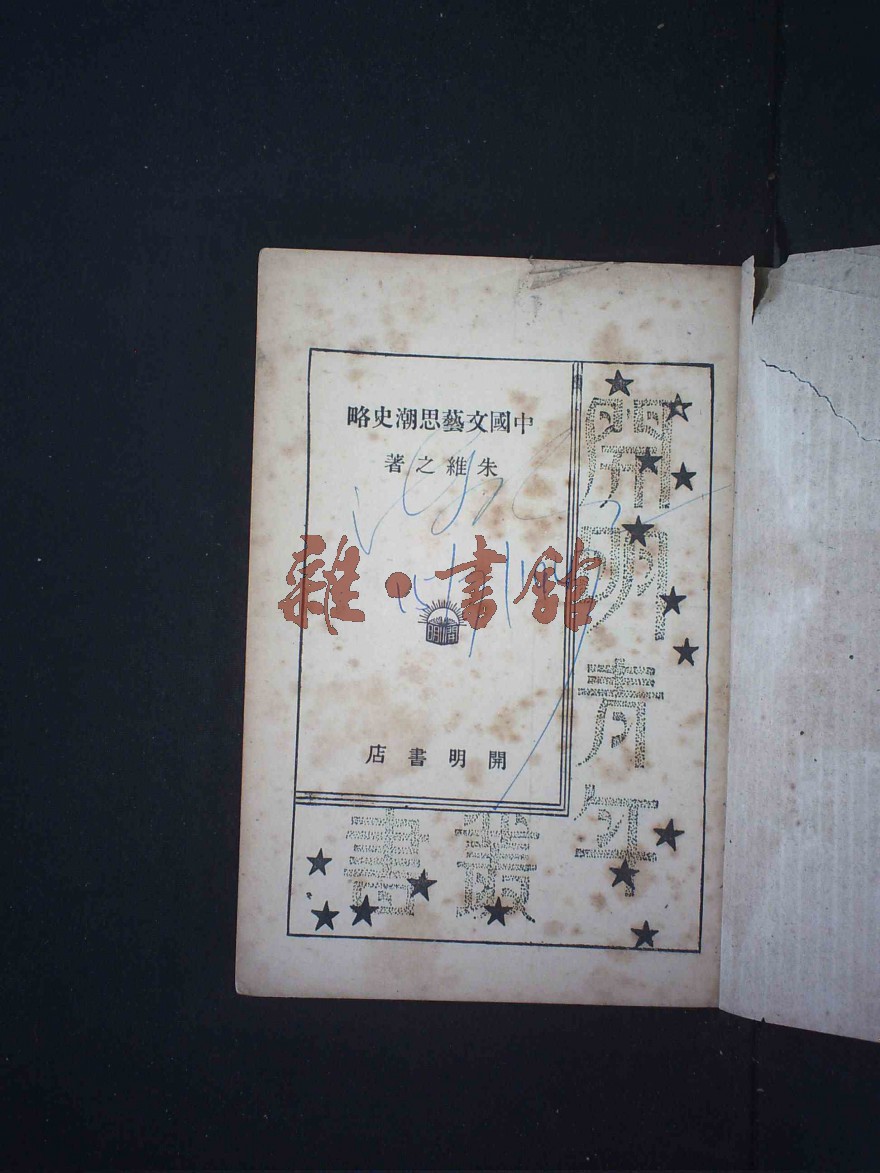 中國文藝思潮史略
朱維之著
雜·書館
開明
開明書店
開明青年
叢書